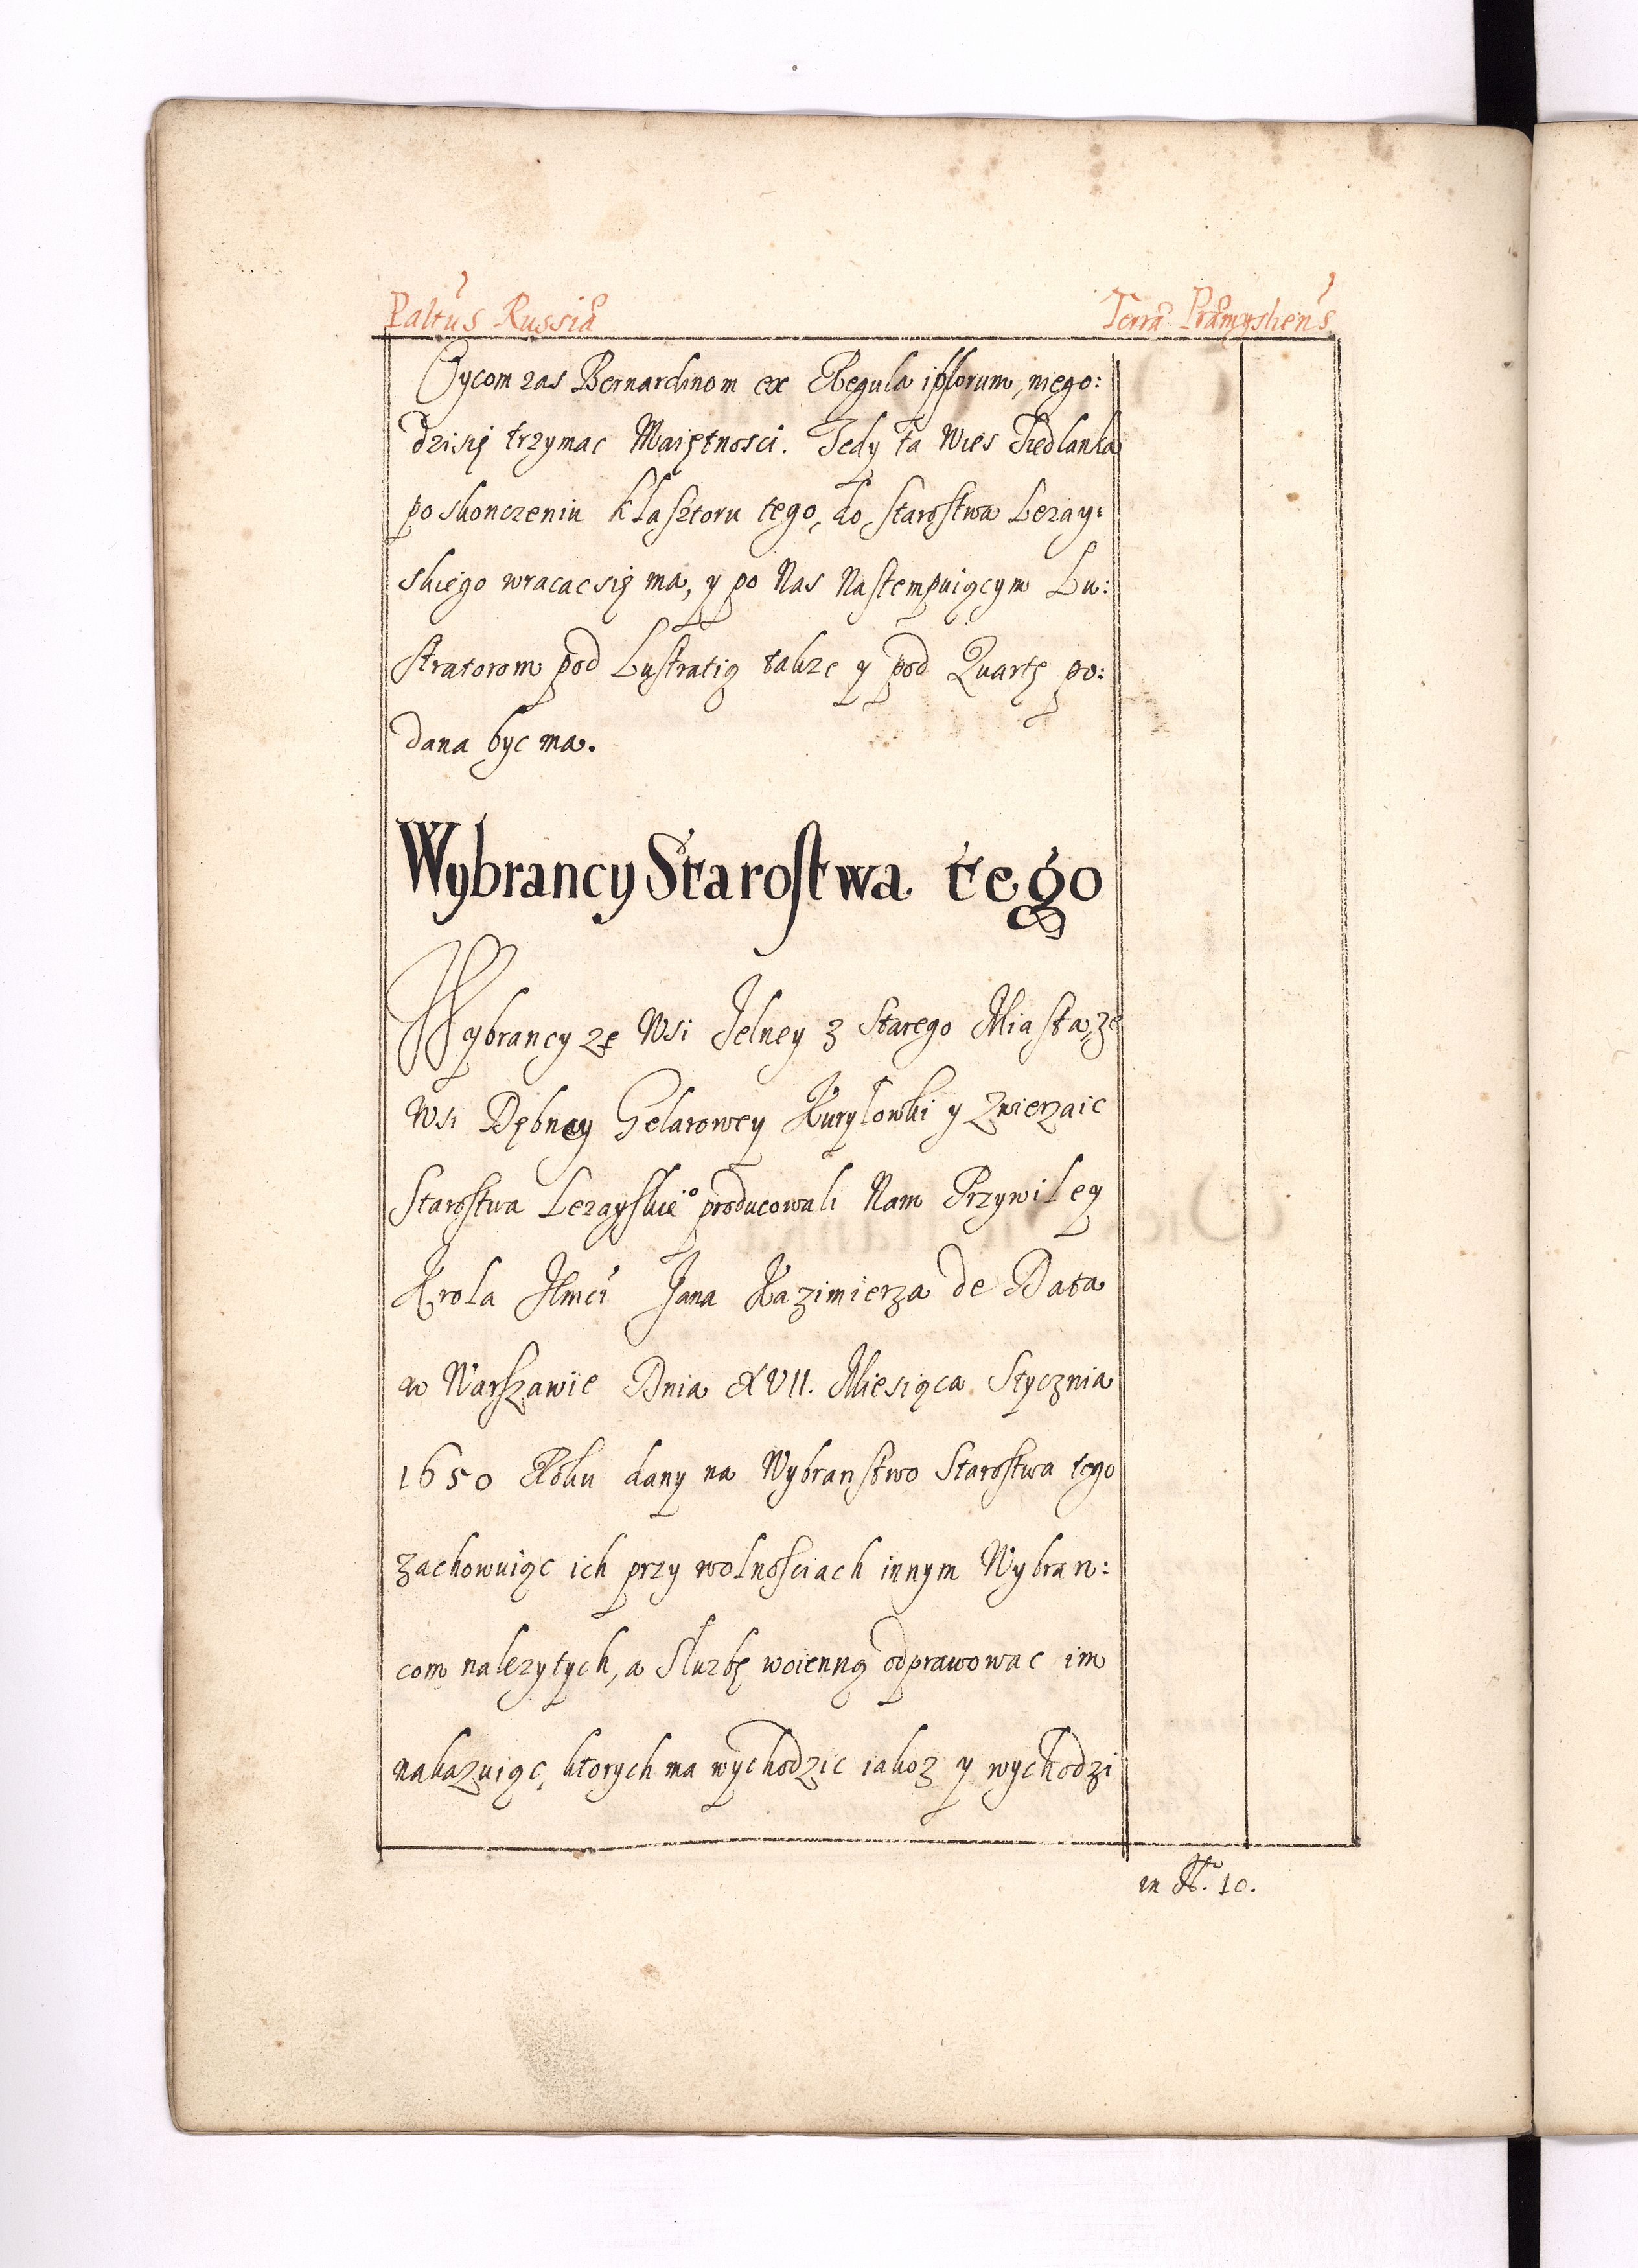 Paltus Russiæ
Terræ Præmysliens
Oycom zas Bernardinom ex Regula ipsorum, niego:
dzisię trzymac Maiętnosci. Tedy ta Wies Siedlanka
po skonczeniu klasztoru tego, do Starostwa Lezay:
skiego wracac się ma, y po Nas Nastempuiącym Lu:
stratorom pod Lustratią takze y pod Quartę po:
dana byc ma.
Wybrancy Starostwa tego
Wybrancy ze Wsi Jelney z Starego Miasta, ze
Wsi Dębney Gelarowey Kuryłowki y Zwierzaic
Starostwa Lezayskie° producowali Nam Przywiley
Krola JKmci Jana Kazimierza de Data
w Warszawie Dnia XVII. Miesiąca Stycznia
1650 Roku dany na Wybranstwo Starostwa tego
zachowuiąc ich przy wolnosciach innym Wybran:
com nalezytych, a Służbę woienną odprawowac im
nakazuiąc, ktorych ma wychodzic iakoz y wychodzi
in N. 10.